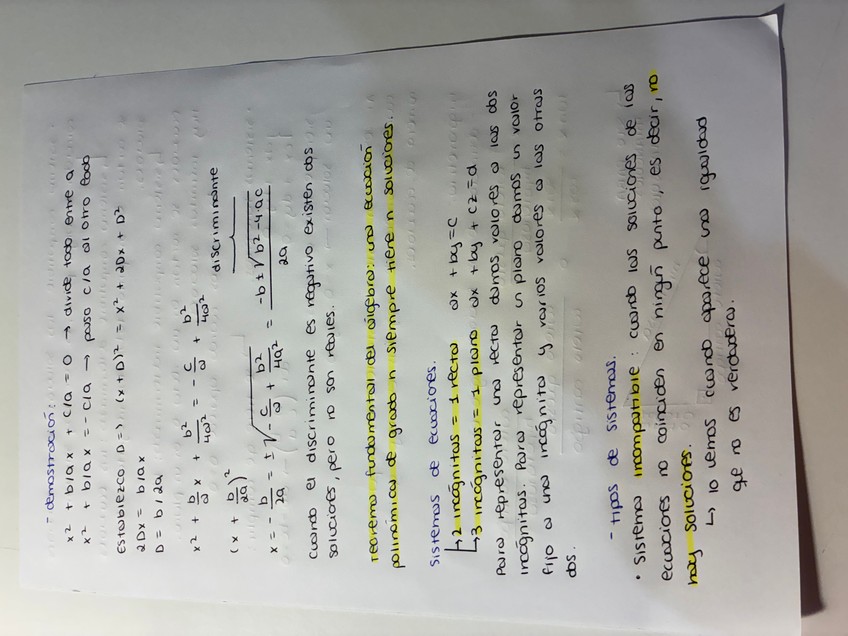 - demostración:
x² + b/a x + c/a = 0 → divide todo entre a
x² + b/a x = - c/a → paso c/a al otro lado
Establezco D => (x + D)² = x² + 2Dx + D²
2Dx = b/a x
D = b/2a
x² + b/a x + b²/4a² = - c/a + b²/4a²
(x + b/2a)²
discriminante
x = - b/2a = ±√(- c/a + b²/4a²) = -b ± √(b² - 4·ac) / 2a
cuando el discriminante es negativo existen dos
soluciones, pero no son reales.
teorema fundamental del álgebra: una ecuación
polinómica de grado n siempre tiene n soluciones.
sistemas de ecuaciones.
↳ 2 incógnitas = 1 recta ax + by = c
↳ 3 incógnitas = 1 plano ax + by + cz = d
Para representar una recta damos valores a las dos
incógnitas. Para representar un plano damos un valor
fijo a una incógnita y varios valores a las otras
dos.
- tipos de sistemas.
• Sistema incompatible: cuando las soluciones de las
ecuaciones no coinciden en ningún punto, es decir, no
hay soluciones.
↳ lo vemos cuando aparece una igualdad
que no es verdadera.